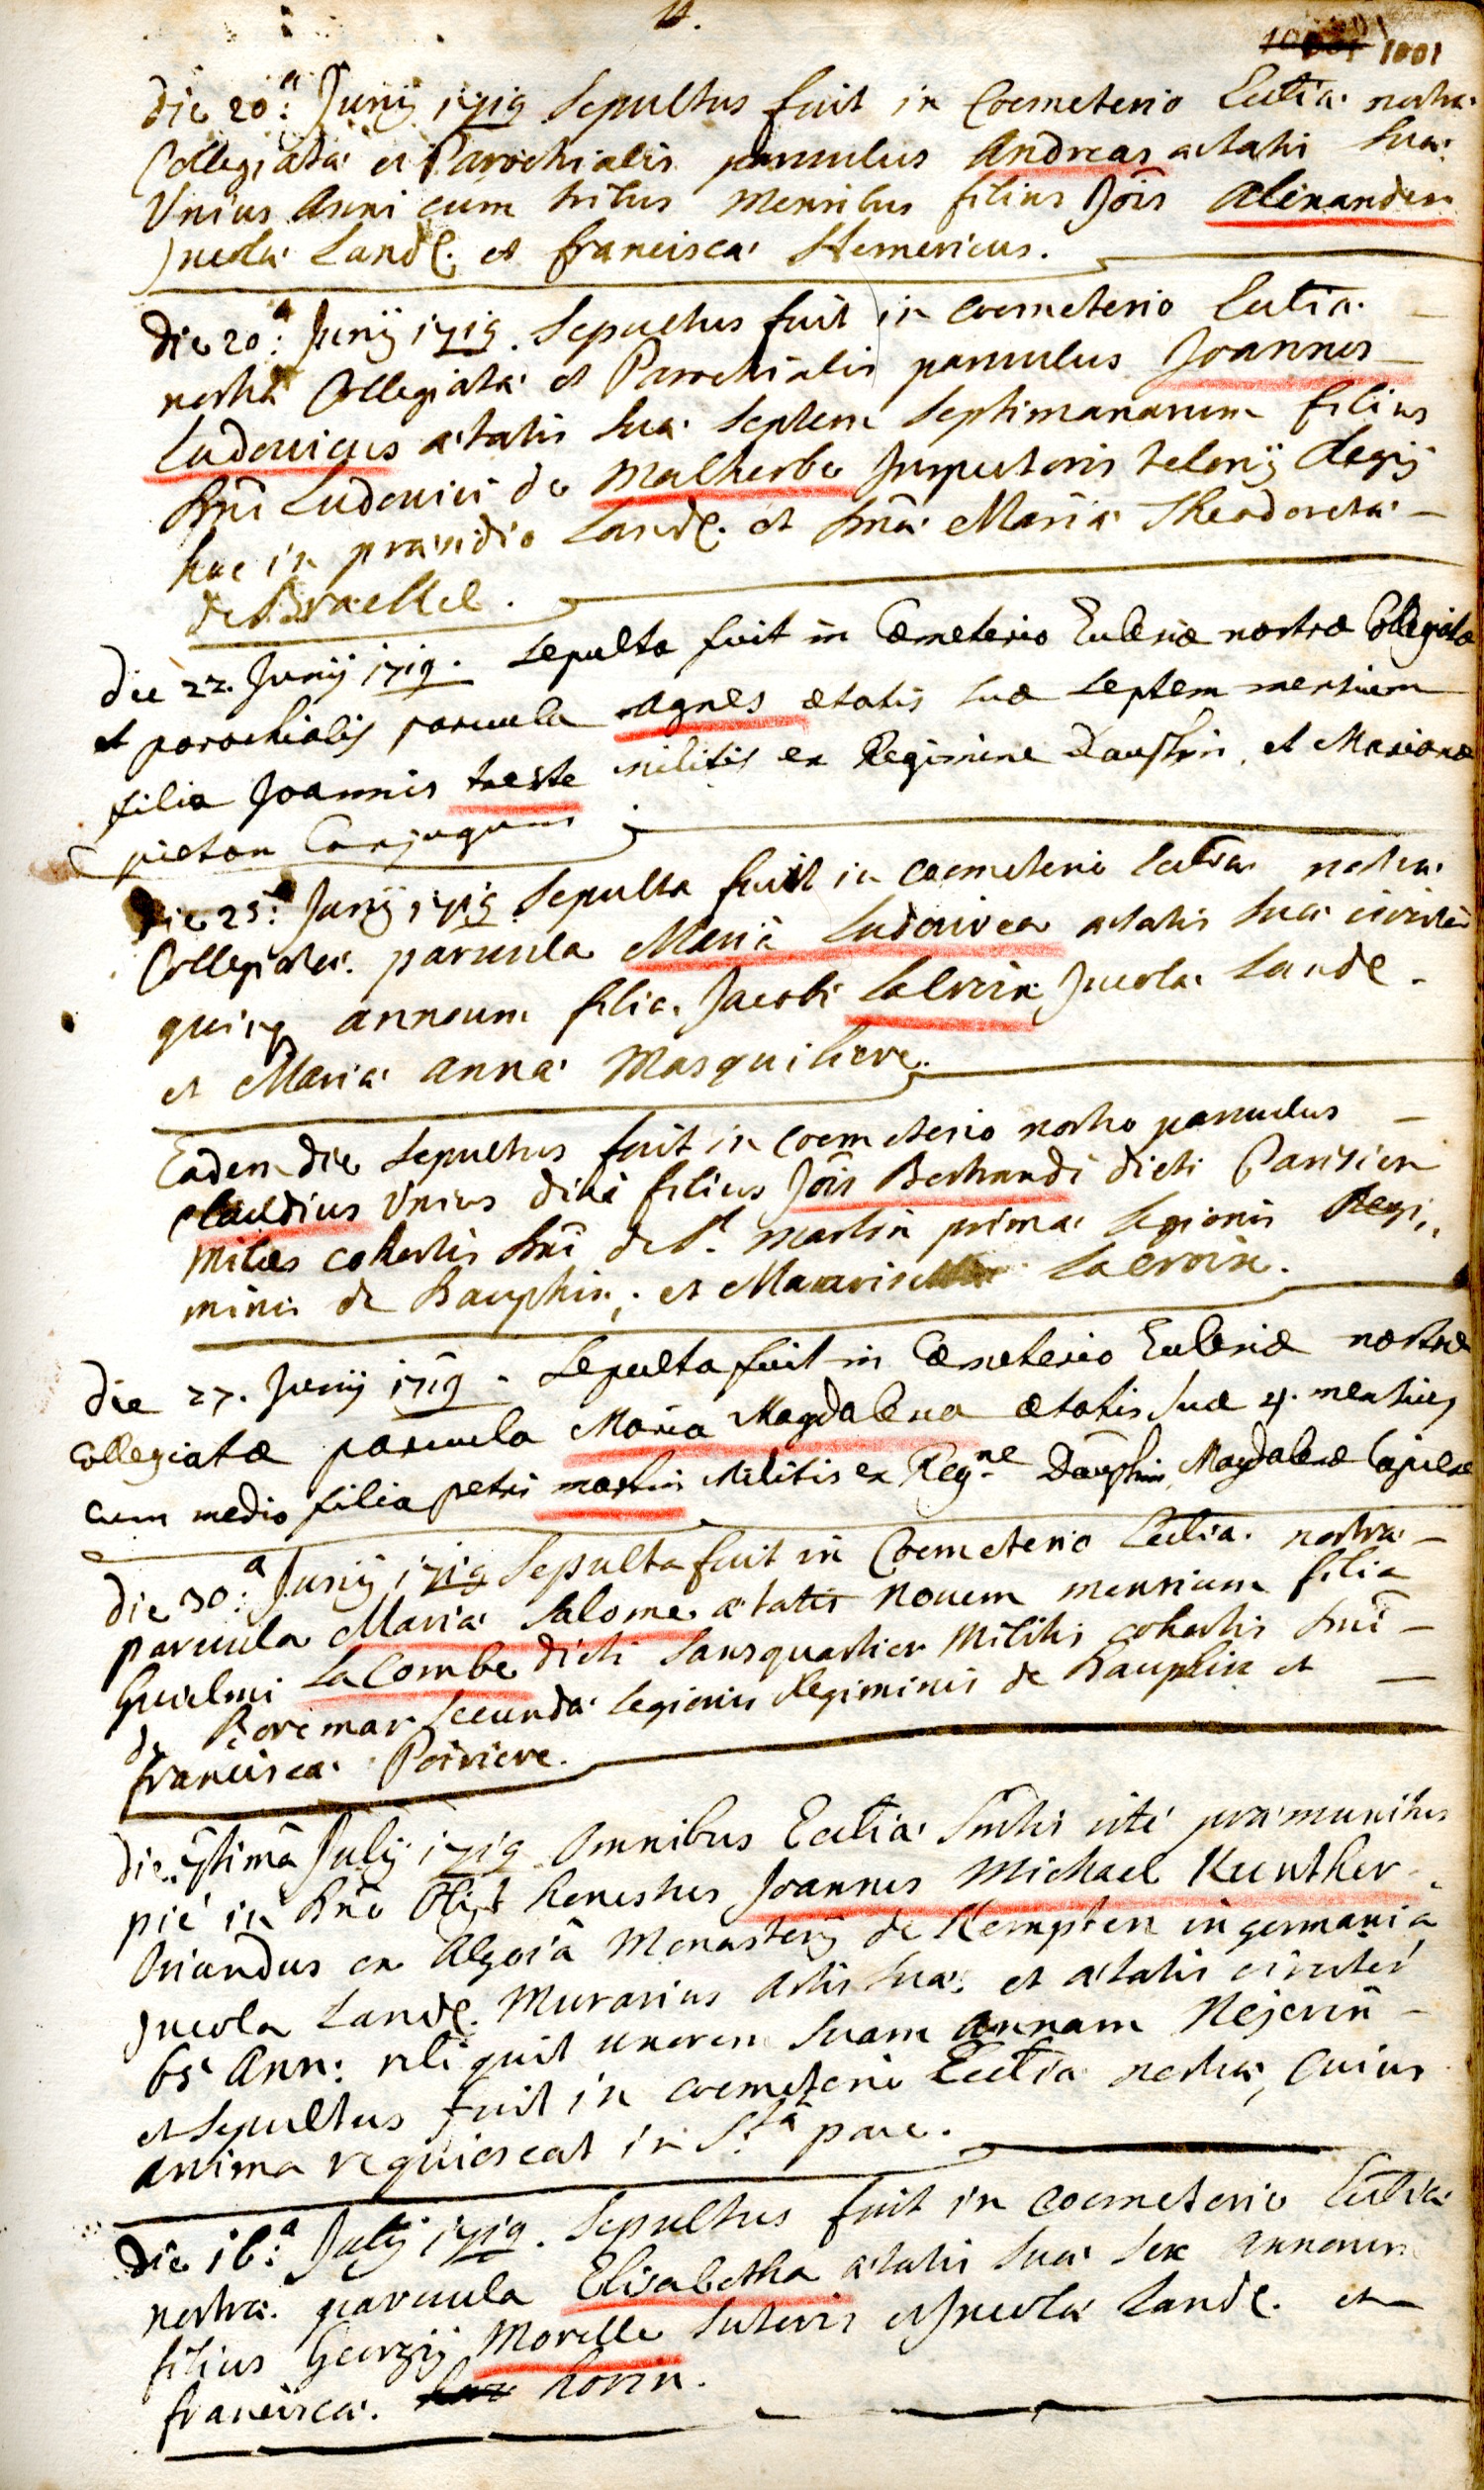 11.
1001
Die 20.a Junij 1719 Sepultus fuit in Coemeterio Eccl'iae nostrae
Collegiatae et Parochialis parvulus Andreas aetatis suae
Unius Anni cum tribus mensibus filius Jõis Alexander
Jncolae Land. et franciscae Hemericus.
Die 20.a Junij 1719. Sepultus fuit in Coemeterio Eccl'iae
nostrae Collegiatae et Parochialis parvulus Joannes
Ludovicus aetatis suae Septem Septimanarum filius
Dni Ludovici de Malherbe Jnspectoris telonij Regij
hac in praesidio Land. et Dnae Mariae Theodoreta
de Braekel.
Die 22. Junij 1719. Sepulta fuit in Coemeterio Ecclesiae nostrae Collegiatae
et parochialis parvula Agnes aetatis suae septem mensium
filia Joannis teste militis ex Regimine Dauphin, et Mariane
pieton Conjugum
Die 25.a Junij 1719 Sepulta fuit in Coemeterio Eccl'iae nostrae
Collegiatae parvula Maria Ludovica aetatis suae circiter
quinq annorum filia Jacobi Jncolae Land.
et Mariae Annae Masquiliere.
Eadem die Sepultus fuit in Coemeterio nostro parvulus
Claudius Unius diei filius Jõis Bertrandi dicti Parisien
Miles cohortis Dni de St. Martin primae legionis Regi,,
minis de Dauphin, et Lacroix.
Die 27. Junij 1719. Sepulta fuit in Coemeterio Ecclesiae nostrae
Collegiatae parvula Maria Magdalena aetatis suae 4. mensium
cum medio filia petri martin Militis ex Reg.ne Dauphin, Magdalenae
Die 30.a Junij 1719 Sepulta fuit in Coemeterio Eccl'iae nostrae
parvula Maria Salome aetatis Novem mensium filia
Guielmi LaCombe dicti Sansquartier Militis cohortis Dni
de Roremar Secundae legionis Regiminis de Dauphin et
franciscae Poiriere.
Die 7timâ Julij 1719 Omnibus Eccl'iae Sm̃tis ritè praemunitus
piè in Dno Obijt honestus Joannes Michael Kunther
Oriundus ex Algoiâ Monasterij de Kempten in germania
Jncola Land. Murarius Artis suae et aetatis circiter
65 Ann: reliquit uxorem suam Annam Mejerin
et sepultus fuit in coemeterio Eccl'iae nostrae, cuius
anima requiescat in S.tâ pace.
Die 16.a Julij 1719. Sepultus fuit in Coemeterio Eccl'iae
nostrae parvula Elisabetha aetatis suae sex annorum
filius Georgij Morelle Sutoris et Jncolae Land. et
franciscae horin.